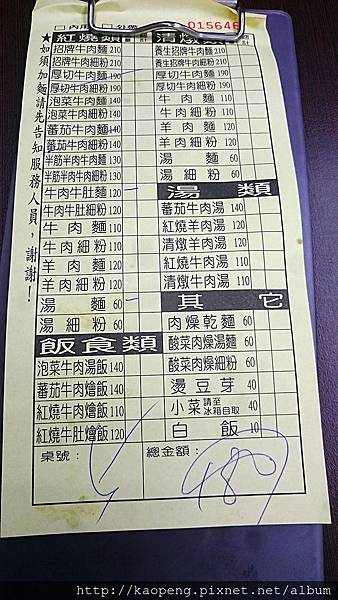 內用 外帶 015646
★紅燒類
招牌牛肉麵 210
招牌牛肉細粉 210
厚切牛肉麵 190
厚切牛肉細粉 190
泡菜牛肉麵 140
泡菜牛肉細粉 140
蕃茄牛肉麵 140
蕃茄牛肉細粉 140
半筋半肉牛肉麵 130
半筋半肉牛肉細粉 130
牛肉牛肚麵 120
牛肉牛肚細粉 120
牛肉麵 110
牛肉細粉 110
羊肉麵 120
羊肉細粉 120
湯麵 60
湯細粉 60
飯食類
泡菜牛肉湯飯 140
蕃茄牛肉燴飯 140
紅燒牛肉燴飯 110
紅燒牛肚燴飯 120
桌號：
清燉類
養生招牌牛肉麵 210
養生招牌牛肉細粉 210
厚切牛肉麵 190
厚切牛肉細粉 190
牛肉麵 110
牛肉細粉 110
羊肉麵 120
羊肉細粉 120
湯麵 60
湯細粉 60
湯類
蕃茄牛肉湯 140
紅燒羊肉湯 120
清燉羊肉湯 120
紅燒牛肉湯 110
清燉牛肉湯 110
其它
肉燥乾麵 60
酸菜肉燥湯麵 60
酸菜肉燥細粉 60
燙豆芽 40
小菜 請至冰箱自取 40
白飯 10
總金額：
480
如須加麵請先告知服務人員，謝謝！
http://kaopeng.pixnet.net/album